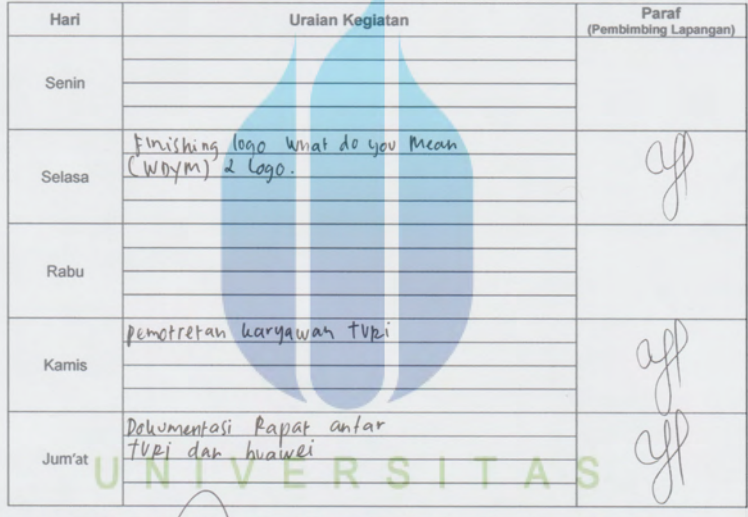 Hari Uraian Kegiatan Paraf
(Pembimbing Lapangan)
Senin
Selasa
Finishing logo What do you Mean
(WDYM) 2 Logo.
Rabu
Kamis
pemotretan karyawan tvri
Jum'at
Dokumentasi Rapat antar
tvri dan huawei
UNIVERSITAS